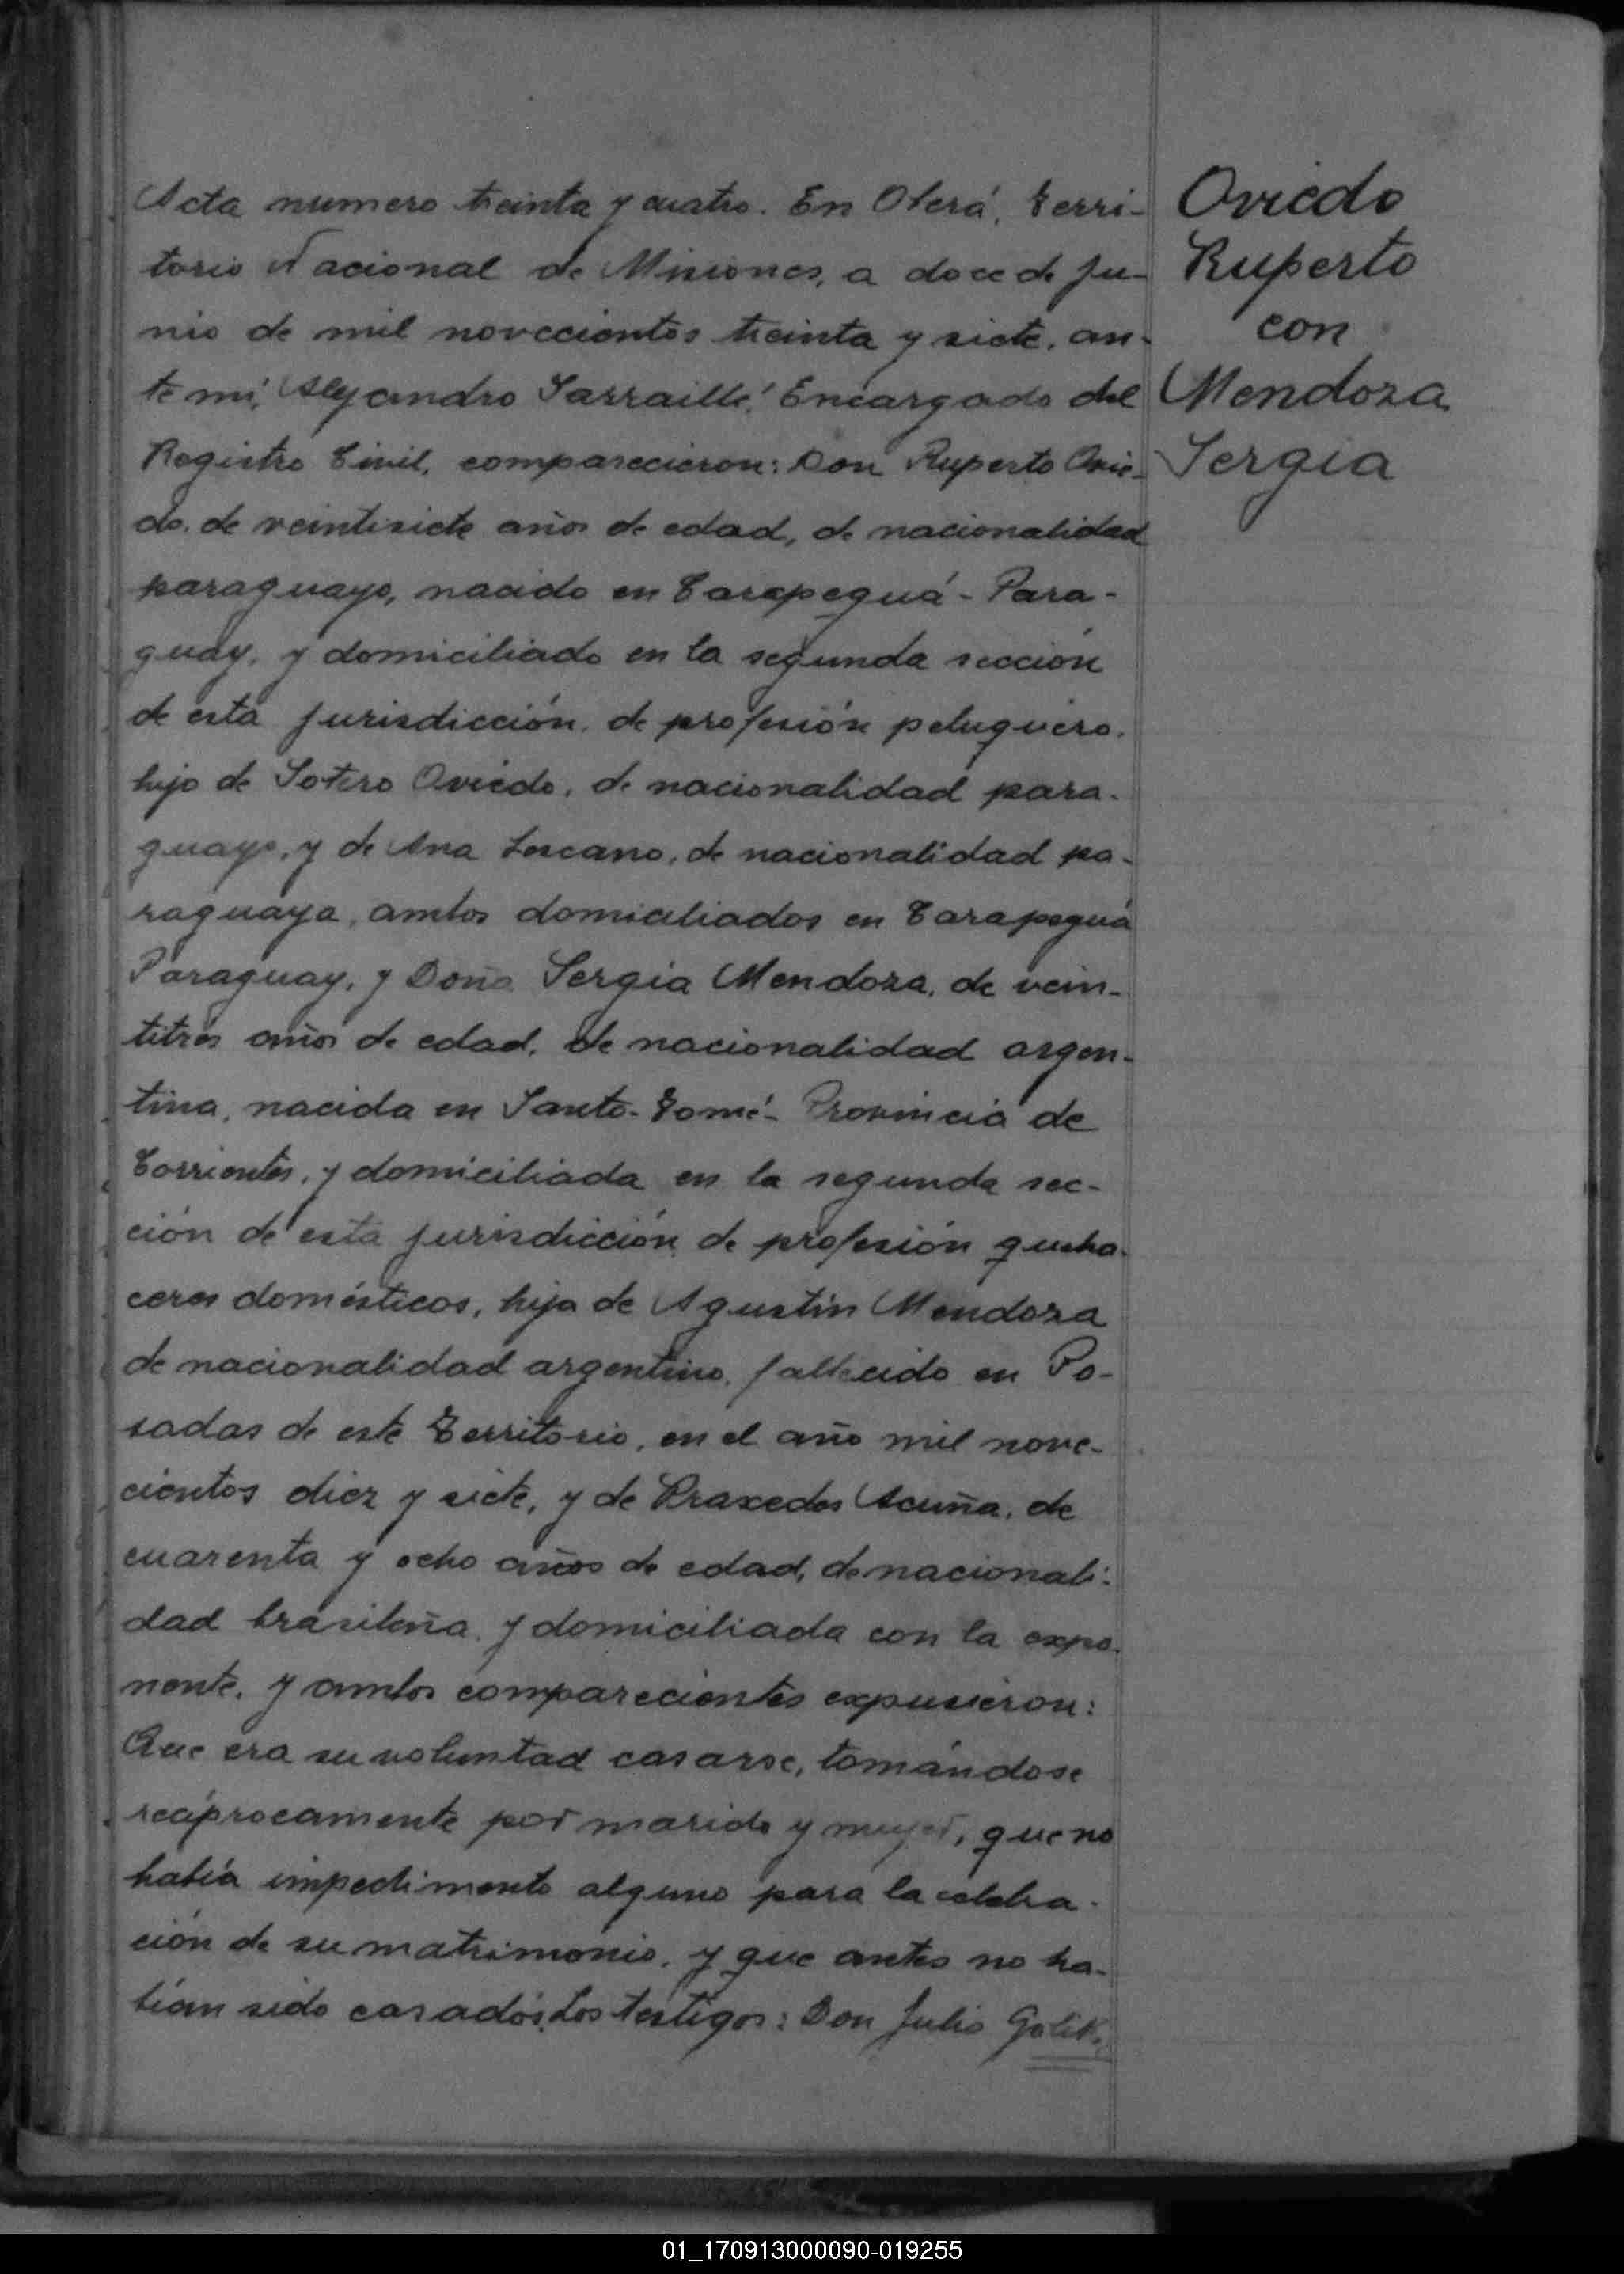 Acta numero treinta y cuatro. En Oberá, Terri-
torio Nacional de Misiones, a doce de Ju-
nio de mil novecientos treinta y siete, an-
te mí, Alejandro Sarraillé, Encargado del
Registro Civil, comparecieron: Don Ruperto Ovie-
do, de veintisiete años de edad, de nacionalidad
paraguayo, nacido en Carapeguá - Para-
guay, y domiciliado en la segunda sección
de esta jurisdicción, de profesión peluquero,
hijo de Sotero Oviedo, de nacionalidad para-
guayo, y de Ana Lescano, de nacionalidad pa-
raguaya, ambos domiciliados en Carapeguá
Paraguay, y Doña Sergia Mendoza, de vein-
titres años de edad, de nacionalidad argen-
tina, nacida en Santo-Tomé- Provincia de
Corrientes, y domiciliada en la segunda sec-
ción de esta jurisdicción, de profesión queha-
ceres domésticos, hija de Agustín Mendoza
de nacionalidad argentino, fallecido en Po-
sadas de este Territorio, en el año mil nove-
cientos diez y siete, y de Praxedes Acuña, de
cuarenta y ocho años de edad, de nacionali-
dad brasileña, y domiciliada con la expo-
nente, y ambos comparecientes expusieron:
Que era su voluntad casarse, tomándose
recíprocamente por marido y mujer, que no
había impedimento alguno para la celebra-
ción de su matrimonio, y que antes no ha-
bían sido casados. Los testigos: Don Julio Golik,
Oviedo
Ruperto
con
Mendoza
Sergia
01_170913000090-019255